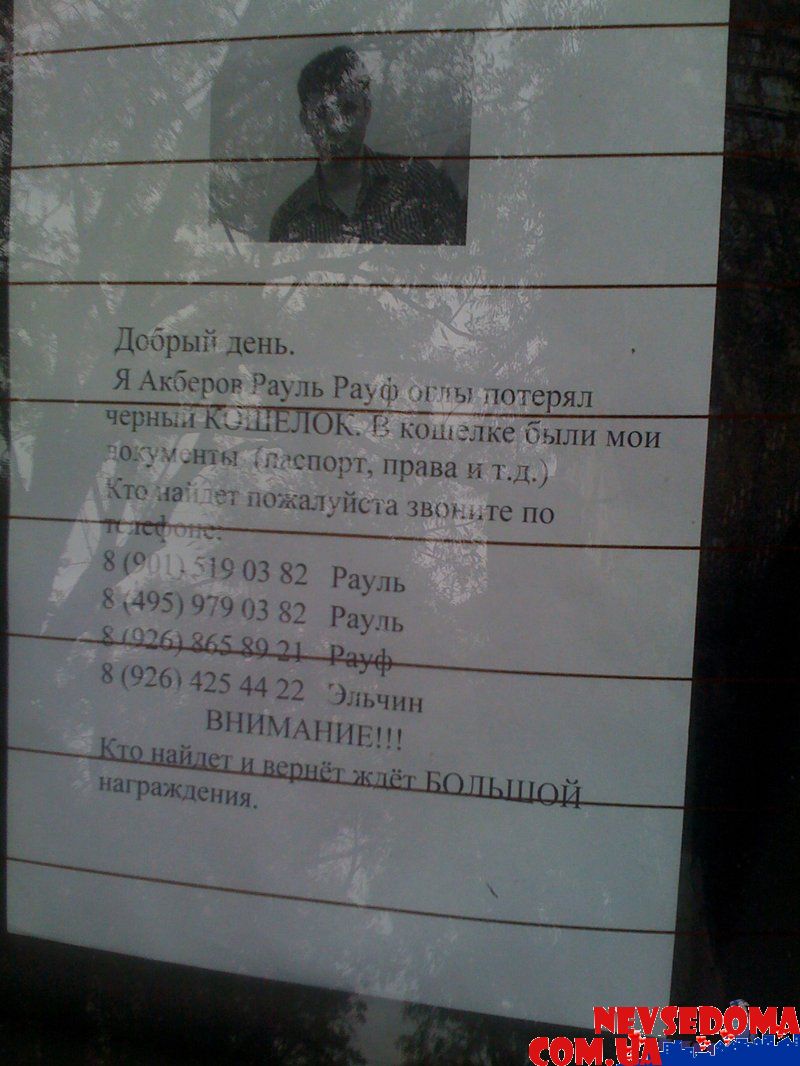 Добрый день.
Я Акберов Рауль Рауф оглы потерял
черный КОШЕЛОК. В кошелке были мои
документы (паспорт, права и т.д.)
Кто найдет пожалуйста звоните по
телефоне:
8 (901) 519 03 82 Рауль
8 (495) 979 03 82 Рауль
8 (926) 865 89 21 Рауф
8 (926) 425 44 22 Эльчин
ВНИМАНИЕ!!!
Кто найдет и вернёт ждёт БОЛЬШОЙ
награждения.
NEVSEDOMA
COM.UA